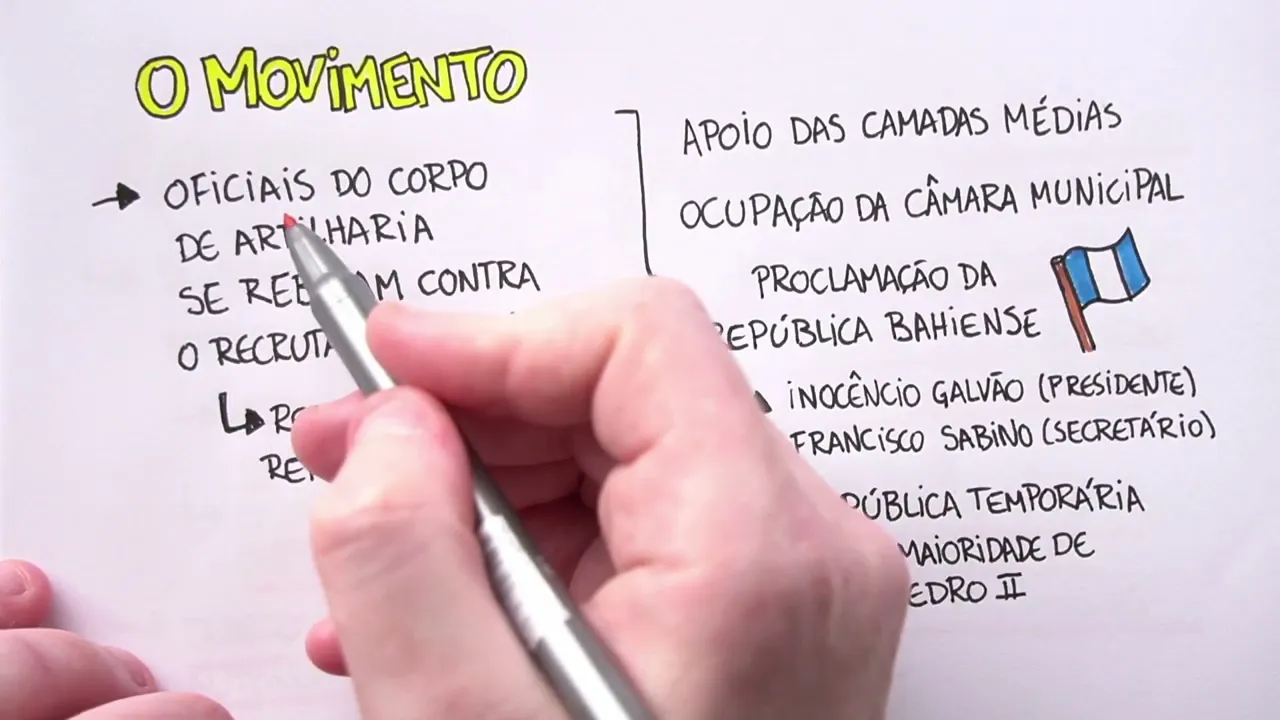 O MOVIMENTO
OFICIAIS DO CORPO
DE ARTILHARIA
SE CONTRA
O
APOIO DAS CAMADAS MÉDIAS
OCUPAÇÃO DA CÂMARA MUNICIPAL
PROCLAMAÇÃO DA
REPÚBLICA BAHIENSE
INOCÊNCIO GALVÃO (PRESIDENTE)
FRANCISCO SABINO (SECRETÁRIO)
TEMPORÁRIA
MAIORIDADE DE
II